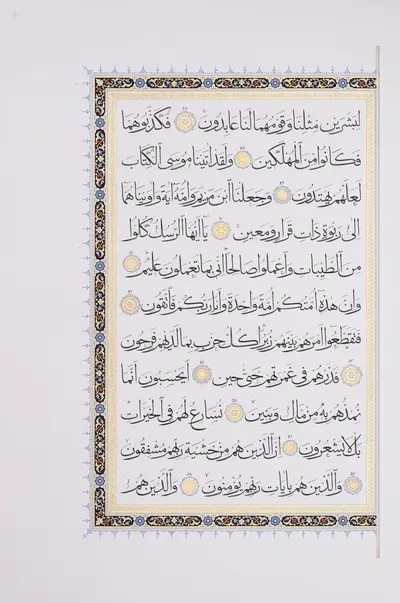 لبشرين مثلنا وقومهما لنا عابدون ۴۷ فكذبوهما
فكانوا من المهلكين ۴۸ ولقد اتينا موسى الكتاب
لعلهم يهتدون ۴۹ وجعلنا ابن مريم وامه اية واويناهما
الى ربوة ذات قرار ومعين ۵۰ يا ايها الرسل كلوا
من الطيبات واعملوا صالحا اني بما تعملون عليم ۵۱
وان هذه امتكم امة واحدة وانا ربكم فاتقون ۵۲
فتقطعوا امرهم بينهم زبرا كل حزب بما لديهم فرحون
۵۳ فذرهم في غمرتهم حتى حين ۵۴ ايحسبون انما
نمدهم به من مال وبنين ۵۵ نسارع لهم في الخيرات
بل لا يشعرون ۵۶ ان الذين هم من خشية ربهم مشفقون
۵۷ والذين هم بايات ربهم يؤمنون ۵۸ والذين هم